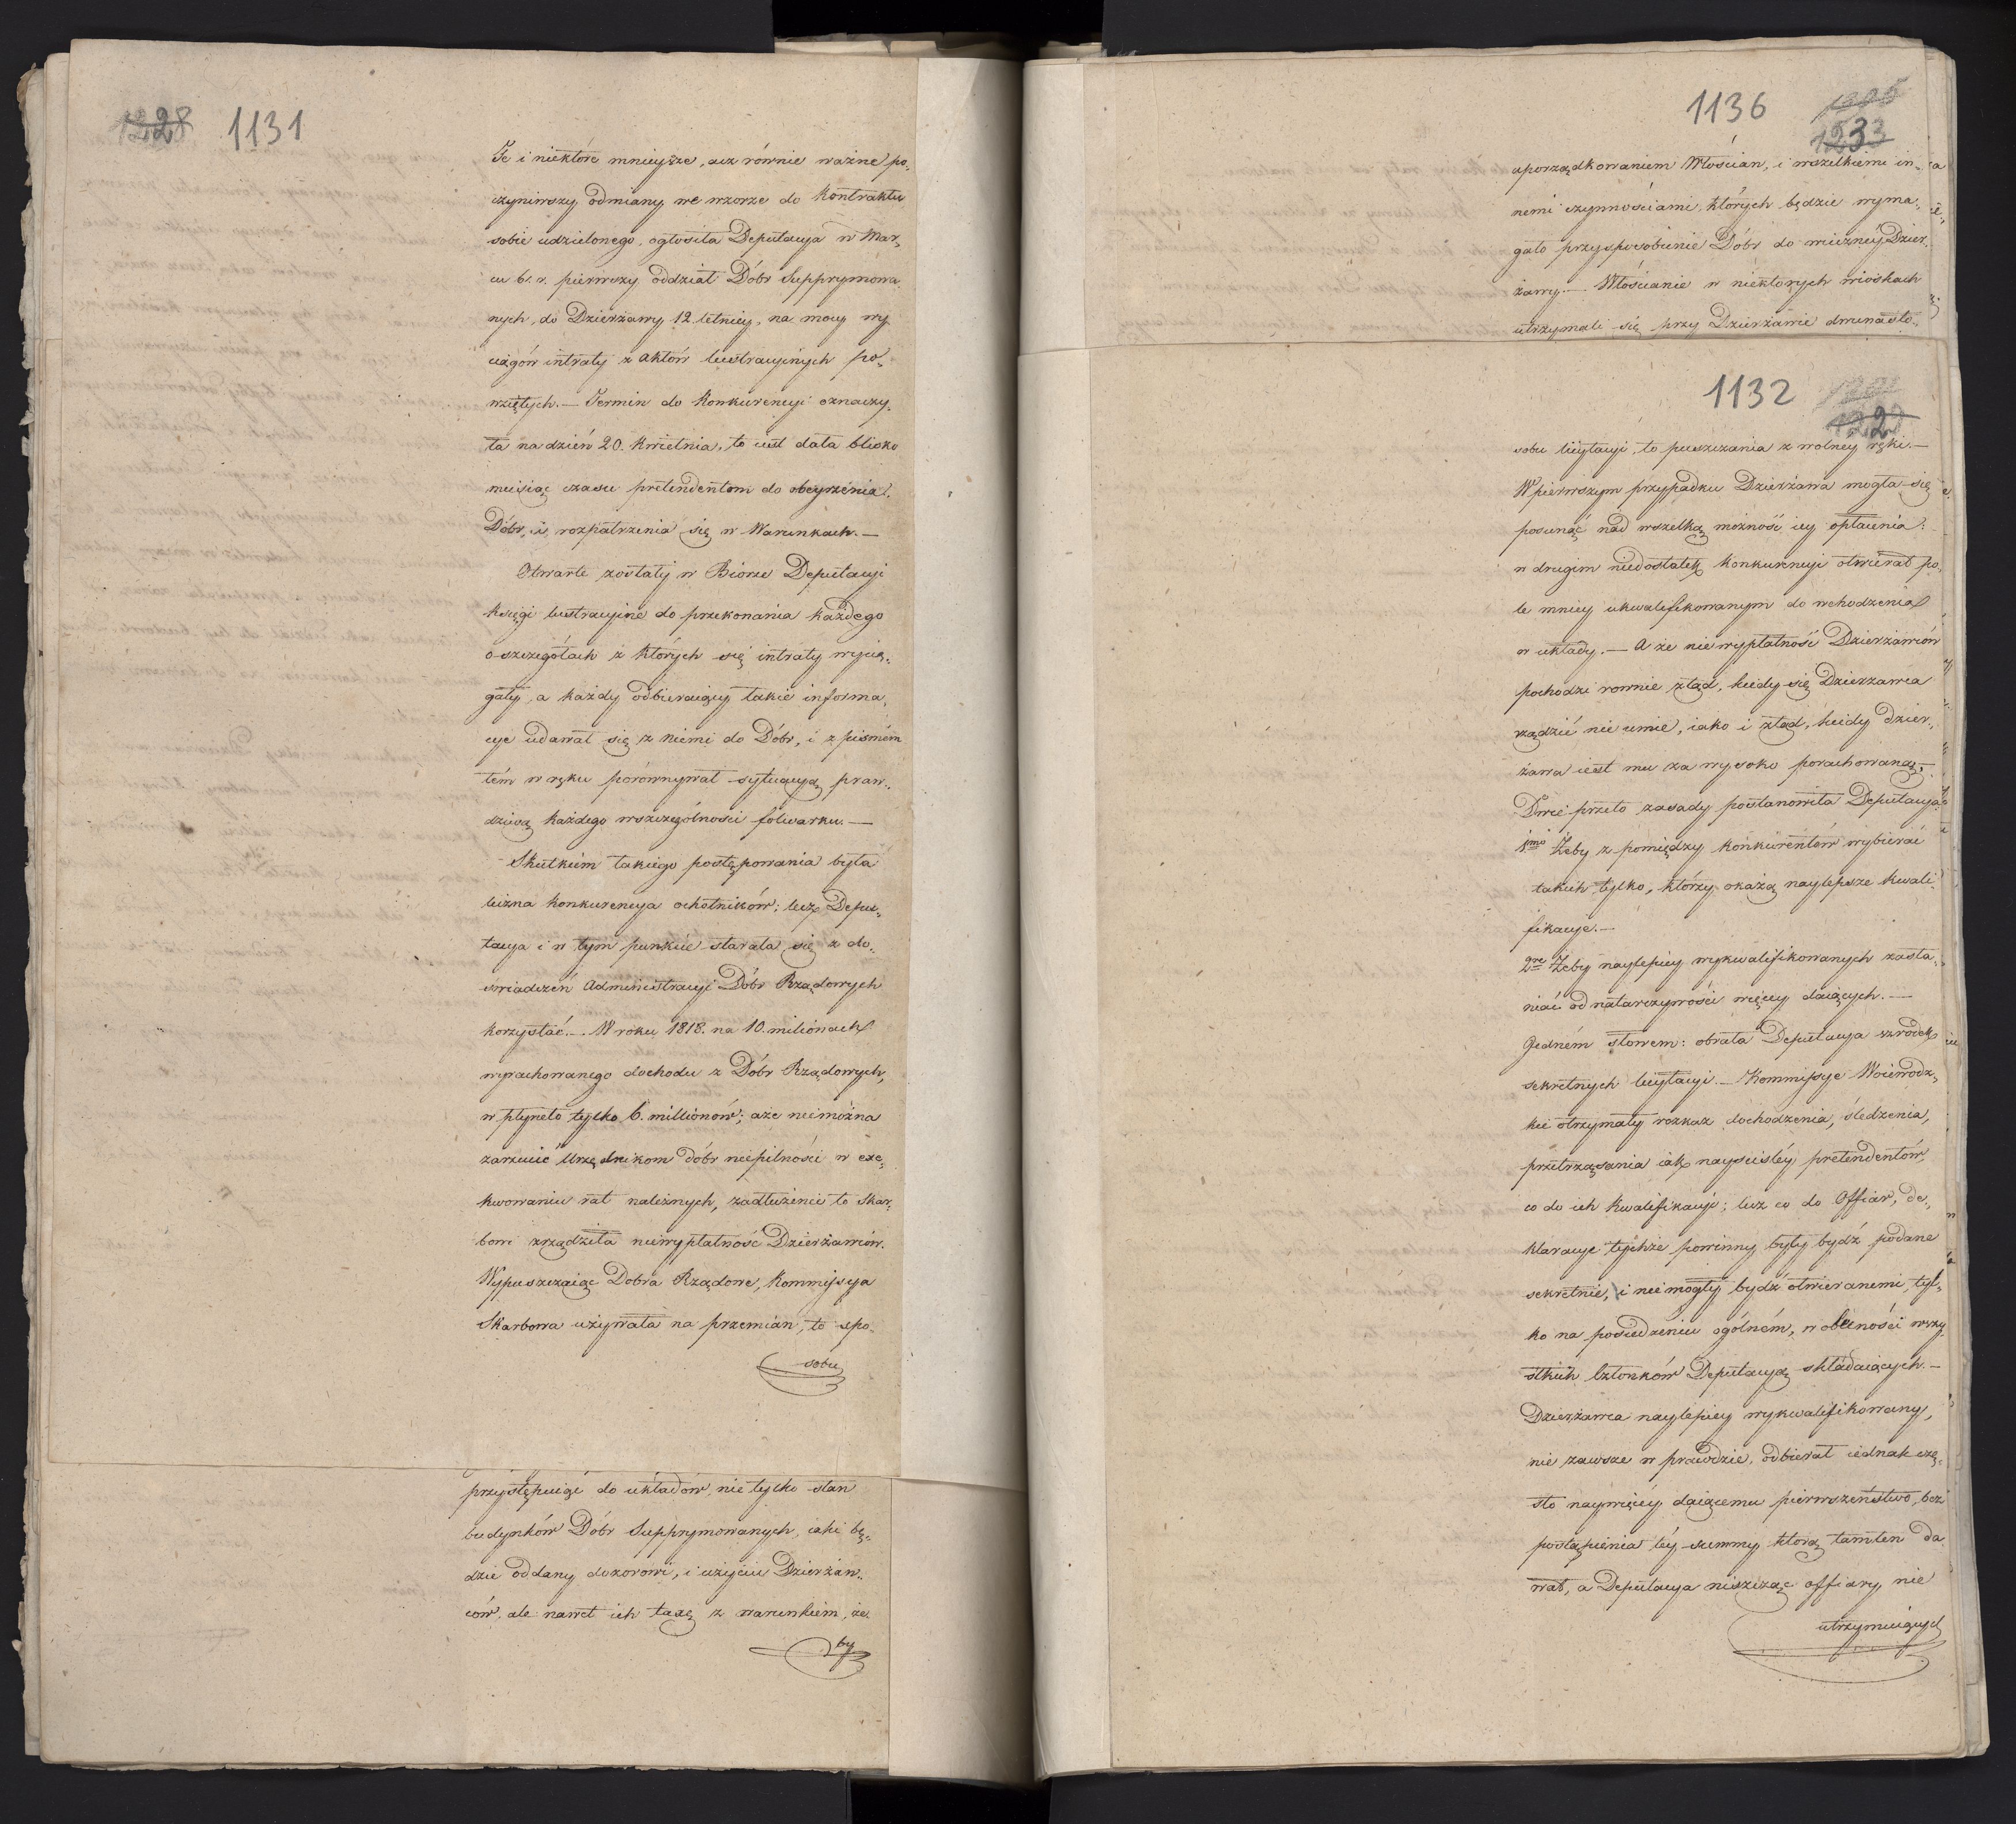 1228 1131
Te i niektóre mnieysze, acz równie ważne po„
czyniwszy odmiany we wzorze do Kontraktu
sobie udzielonego, ogłosiła Deputacya w Mar„
cu b. r. pierwszy oddział Dóbr Supprymowa„
nych, do Dzierżawy 12. letniey, na mocy wy„
ciągów intraty z aktów lustracyinych po„
wziętych. — Termin do Konkurencyi oznaczy„
ła na dzień 20. Kwietnia, to iest dała blisko
miesiąc czasu pretendentom do obeyrzenia
Dóbr, i rozpatrzenia się w Warunkach. —
Otwarte zostały w Biorze Deputacyi
Księgi lustracyine do przekonania każdego
o szczegółach z których się intraty wycią„
gały, a każdy odbieraiący takie informa„
cye udawał się z niemi do Dóbr, i z pismem
tém w ręku porównywał sytuacyą praw„
dziwą każdego wszczególności folwarku. —
Skutkiem takiego postępowania była
liczna konkurencya ochotników; lecz Depu„
tacya i w tym punkcie starała się z do„
świadczeń Administracyi Dóbr Rządowych
korzystać. — W roku 1818. na 10. milionach
wyrachowanego dochodu z Dóbr Rządowych,
wpłyneło tylko 6. millionów; a że nie można
zarzucić Urzędnikom dóbr niepilności w exe„
kwowaniu rat należnych, zadłużenie to Skar„
bowi zrządziła niewypłatność Dzierżawców.
Wypuszczaiąc Dobra Rządowe, Kommissya
Skarbowa używała na przemian, to spo„
sobu
przystępuiąc do układów, nie tylko stan
budynków Dóbr Supprymowanych, iaki bę„
dzie oddany dozorowi, i użyciu Dzierżaw„
ców, ale nawet ich taxę z warunkiem, że„
by
1136
1233
uporządkowaniem Włościan, i wszelkiemi in„
nemi czynnościami, których będzie wyma„
gało przysposobienie Dóbr do wieczney Dzier„
żawy. — Włościanie w niektorych wioskach
utrzymali się przy Dzierżawie dwunasto„
1132
sobu licytacyi, to puszczania z wolney ręki. —
W pierwszym przypadku Dzierżawa mogła się
posunąć nad wszelką możność iey opłacenia:
w drugim niedostatek konkurencyi otwierał po„
le mniey ukwalifikowanym do wchodzenia
w układy. — A że niewypłatność Dzierżawców
pochodzi rownie ztąd, kiedy się Dzierżawca
rządzić nie umie, iako i ztąd, kiedy dzier„
żawa iest mu za wysoko porachowaną —
Dwie przeto zasady postanowiła Deputacya
1mo Żeby z pomiędzy konkurentów wybierać
takich tylko, którzy okażą naylepsze kwali„
fikacye. —
2re Żeby naylepiey wykwalifikowanych zasła„
niać od natarczywości więcey daiących. —
Jedném słowem: obrała Deputacya szrodek
sekretnych licytacyi. — Kommissye Woiewodz„
kie otrzymały rozkaz dochodzenia, śledzenia,
przetrząsania iak nayściśléy pretendentów,
co do ich Kwalifikacyi; lecz co do Offiar, de„
klaracye tychże powinny były bydź podane
sekretnie, i nie mogły bydź otwieranemi, tyl„
ko na posiedzeniu ogólném, w obecności wszy„
stkich Członków Deputacyą składaiących. —
Dzierżawca naylepiey wykwalifikowany,
nie zawsze w prawdzie, odbierał iednak czę„
sto naywięcéy daiącemu pierwszeństwo, bez
postąpienia téy summy którą tamten da„
wał, a Deputacya niszcząc offiary nie
utrzymuiących